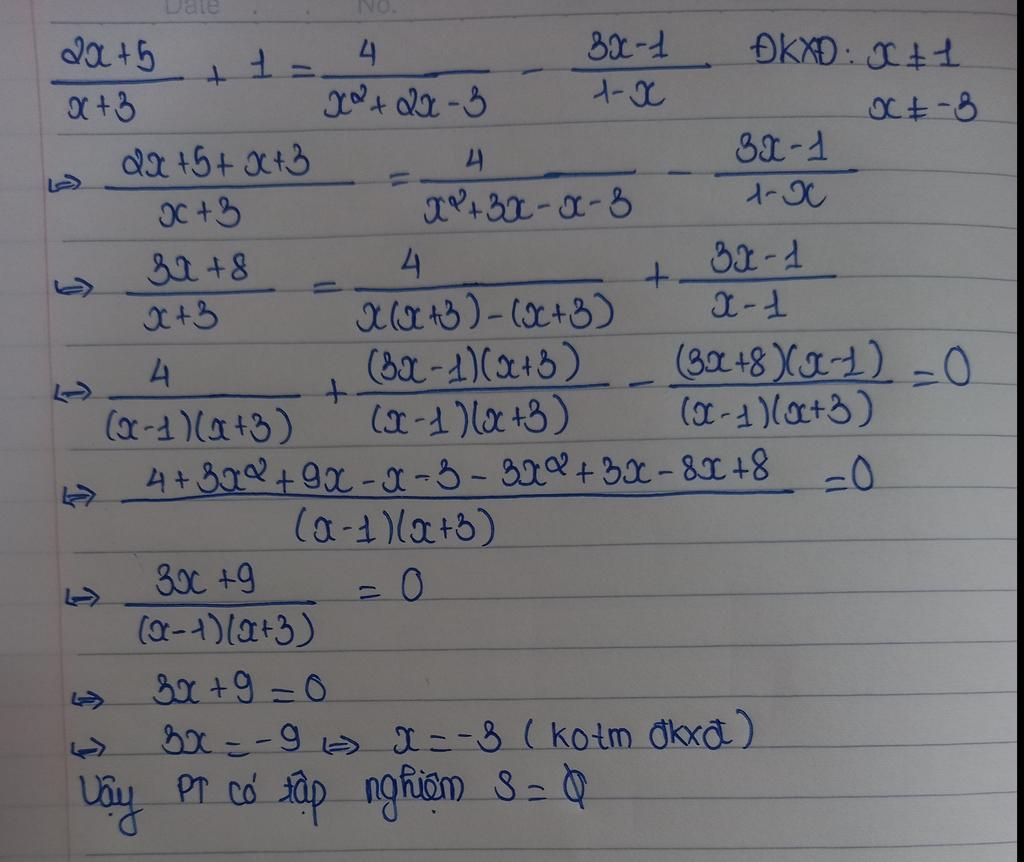 Date No.
(2x+5)/(x+3) + 1 = 4/(x²+2x-3) - (3x-1)/(1-x) ĐKXĐ: x ≠ 1
x ≠ -3
⇔ (2x+5+x+3)/(x+3) = 4/(x²+3x-x-3) - (3x-1)/(1-x)
⇔ (3x+8)/(x+3) = 4/(x(x+3)-(x+3)) + (3x-1)/(x-1)
⇔ 4/((x-1)(x+3)) + ((3x-1)(x+3))/((x-1)(x+3)) - ((3x+8)(x-1))/((x-1)(x+3)) = 0
⇔ (4+3x²+9x-x-3-3x²+3x-8x+8)/((x-1)(x+3)) = 0
⇔ (3x+9)/((x-1)(x+3)) = 0
⇔ 3x+9=0
⇔ 3x=-9 ⇔ x=-3 (kotm đkxđ)
Vậy PT có tập nghiệm S = ∅